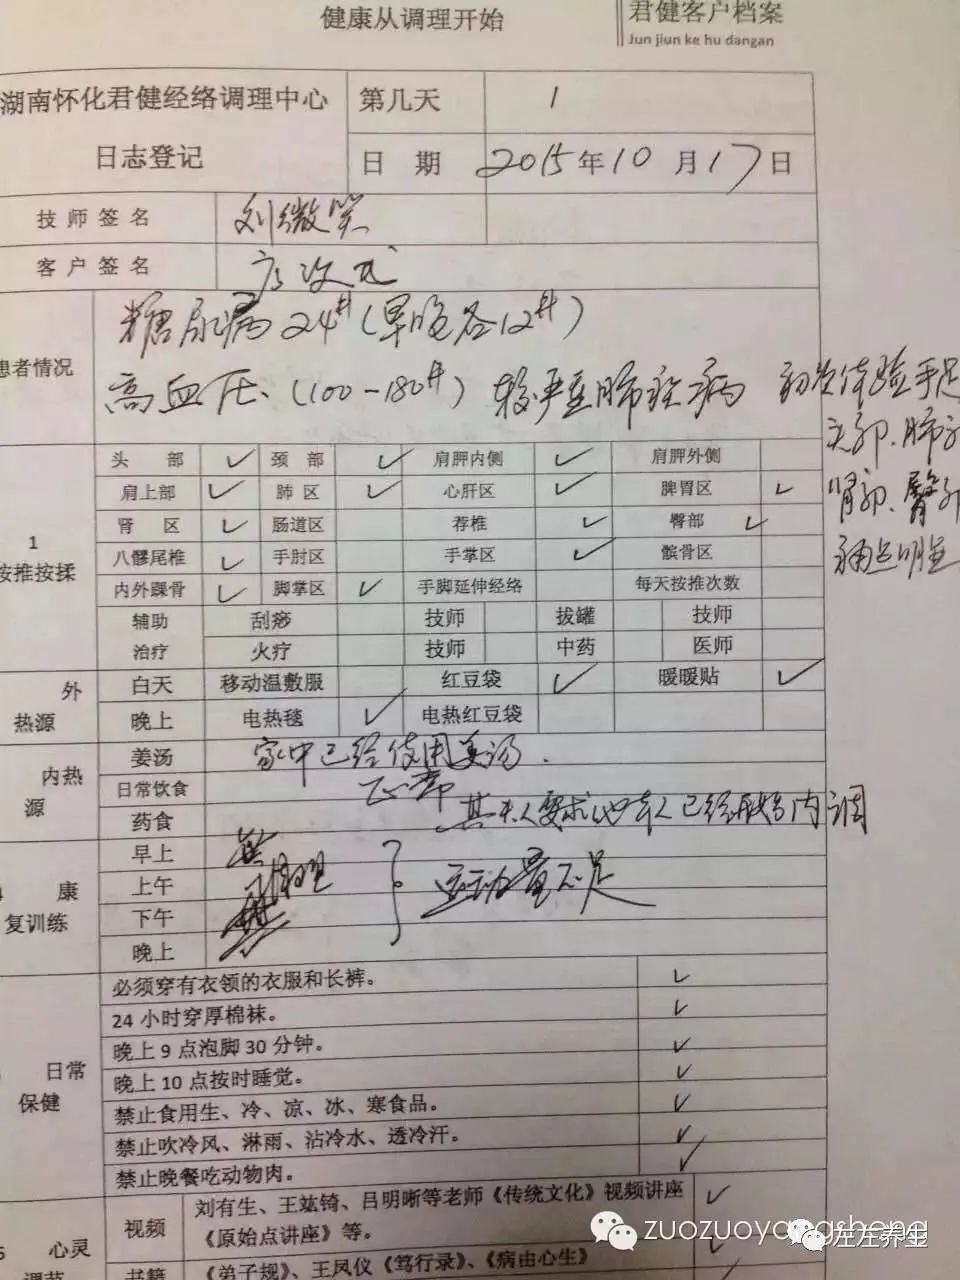 健康从调理开始
君健客户档案
Jun jiun ke hu dangan
湖南怀化君健经络调理中心
日志登记
第几天 1
日 期 2015年10月17日
技师签名 刘微笑
客户签名
患者情况
糖尿病24#(早晚各12#)
高血压(100-180#) 较严重肺 病 初次体验手足
头部、肺
肾部、臀部
痛点明显
1
按推按揉
头 部 ✓ 颈 部 ✓ 肩胛内侧 ✓ 肩胛外侧
肩上部 ✓ 肺 区 ✓ 心肝区 ✓ 脾胃区 ✓
肾 区 ✓ 肠道区 荐椎 ✓ 臀部 ✓
八髎尾椎 ✓ 手肘区 手掌区 ✓ 髌骨区
内外踝骨 ✓ 脚掌区 ✓ 手脚延伸经络 每天按推次数
辅助 刮痧 技师 拔罐 技师
治疗 火疗 技师 中药 医师
外
热源
白天 移动温敷服 红豆袋 ✓ 暖暖贴 ✓
晚上 电热毯 ✓ 电热红豆袋
内热
源
姜汤 家中已经使用姜汤.
日常饮食 正常
药食 其夫人要求他本人已经 内调
康
复训练
早上
上午 调理 运动量不足
下午
晚上
日常
保健
必须穿有衣领的衣服和长裤。 ✓
24 小时穿厚棉袜。 ✓
晚上 9 点泡脚 30 分钟。 ✓
晚上 10 点按时睡觉。 ✓
禁止食用生、冷、凉、冰、寒食品。 ✓
禁止吹冷风、淋雨、沾冷水、透冷汗。 ✓
禁止晚餐吃动物肉。 ✓
心灵
视频
刘有生、王竑锜、吕明晰等老师《传统文化》视频讲座 ✓
《原始点讲座》等。
书籍 《弟子规》、王凤仪《笃行录》、《病由心生》 ✓
zuozuoyangsheng
左左养生